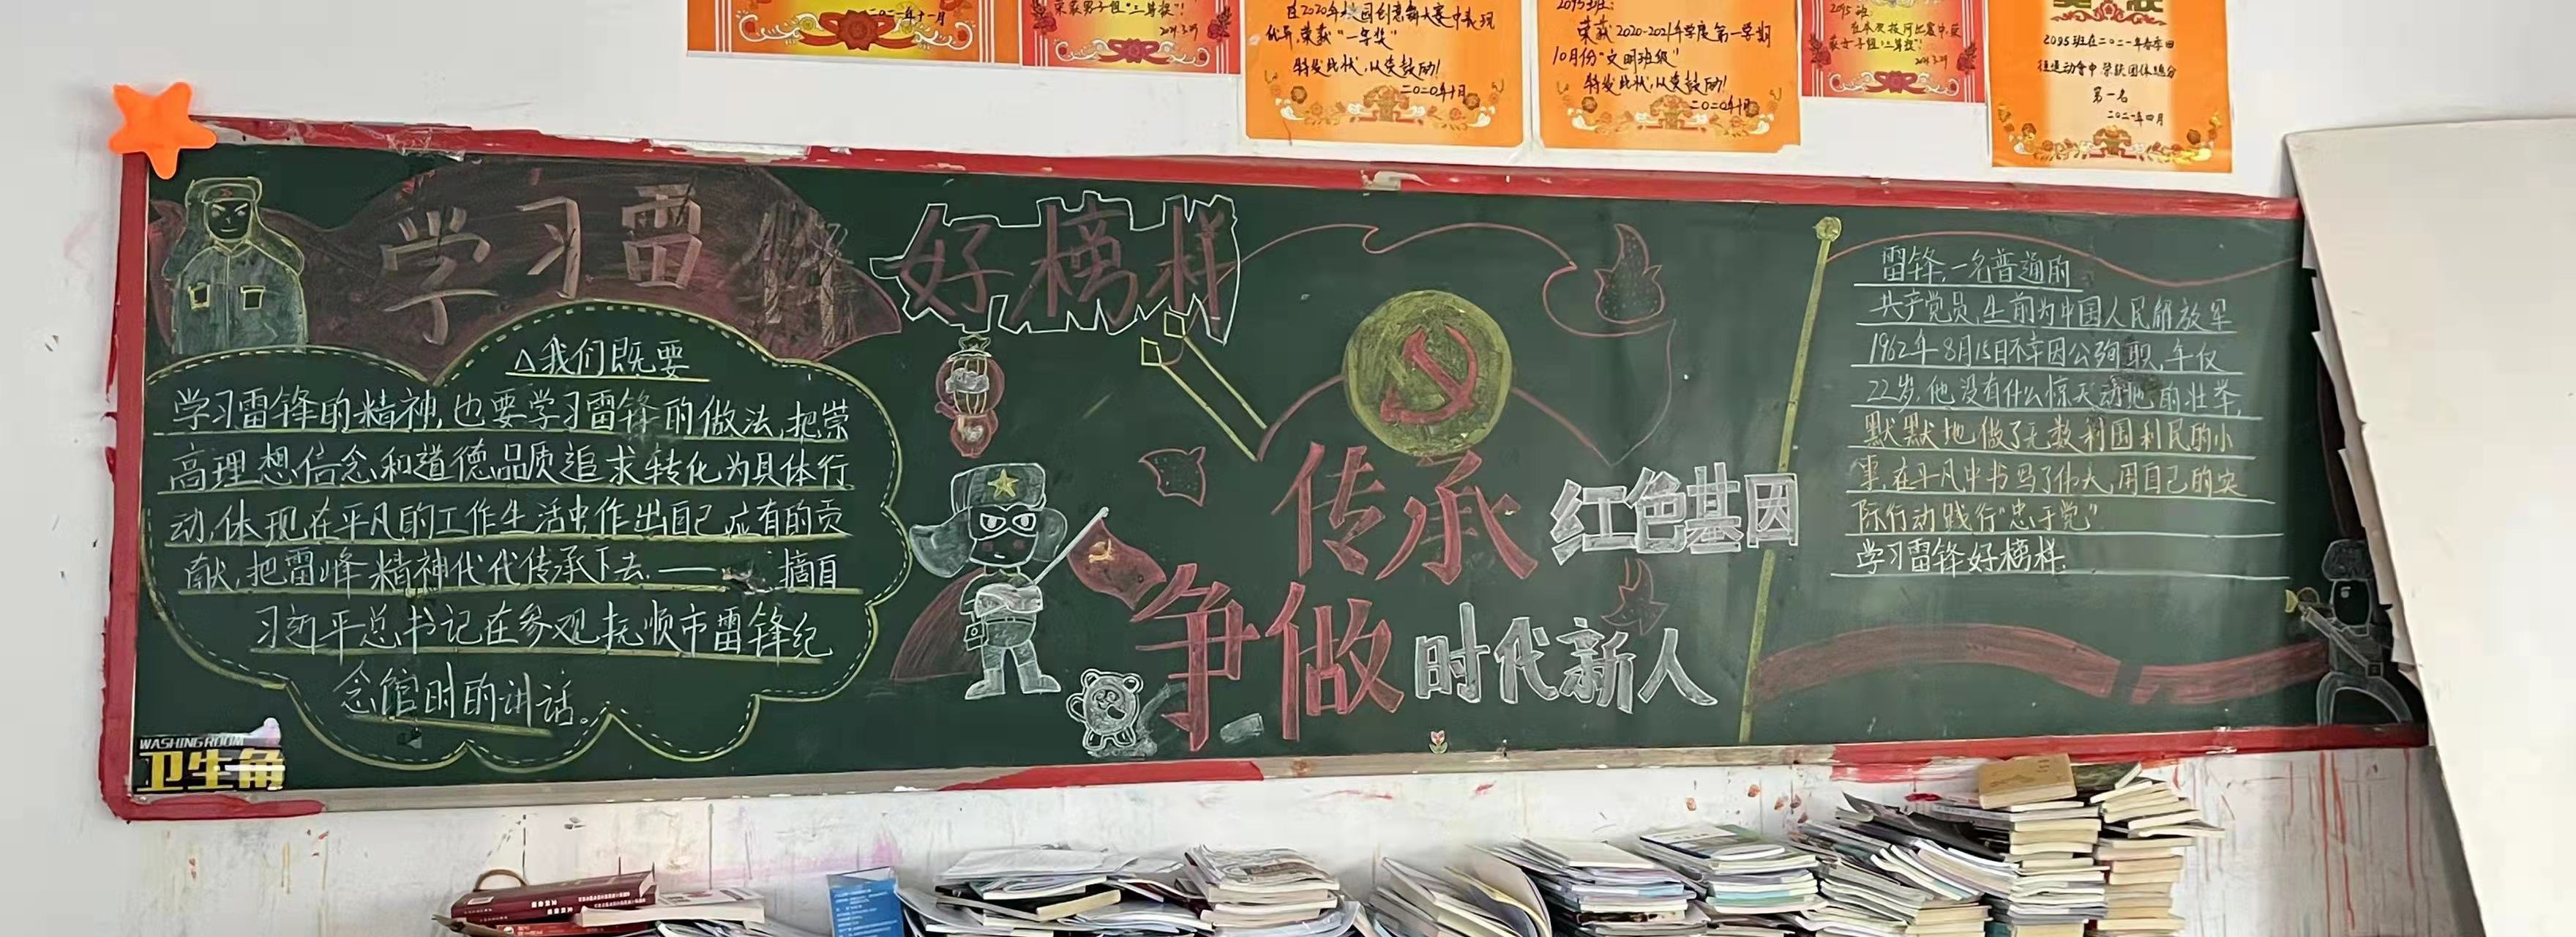 二〇二一年十一月
荣获男子组"三等奖"!
2021.3.29
在2020年校园创意舞大赛中表现
优异,荣获"一等奖"
特发此状,以资鼓励!
二〇二〇年十月
2095班:
荣获2020-2021年学度第一学期
10月份"文明班级"
特发此状,以资鼓励!
二〇二〇年十月
2095班:
2021.3.29
2095班在二〇二一年春季田
径运动会中荣获团体总分
第一名
二〇二一年四月
学习雷锋
好榜样
△我们既要
学习雷锋的精神,也要学习雷锋的做法,把崇
高理想信念和道德品质追求转化为具体行
动,体现在平凡的工作生活中作出自己应有的贡
献,把雷峰精神代代传承下去.——摘自
习近平总书记在参观抚顺市雷锋纪
念馆时的讲话。
WASHING ROOM
卫生角
传承红色基因
争做时代新人
雷锋,一名普通的
共产党员,生前为中国人民解放军
1962年8月15日不幸因公殉职,年仅
22岁,他没有什么惊天动地的壮举,
默默地做了无数利国利民的小
事,在平凡中书写了伟大,用自己的实
际行动践行"忠于党"
学习雷锋好榜样.